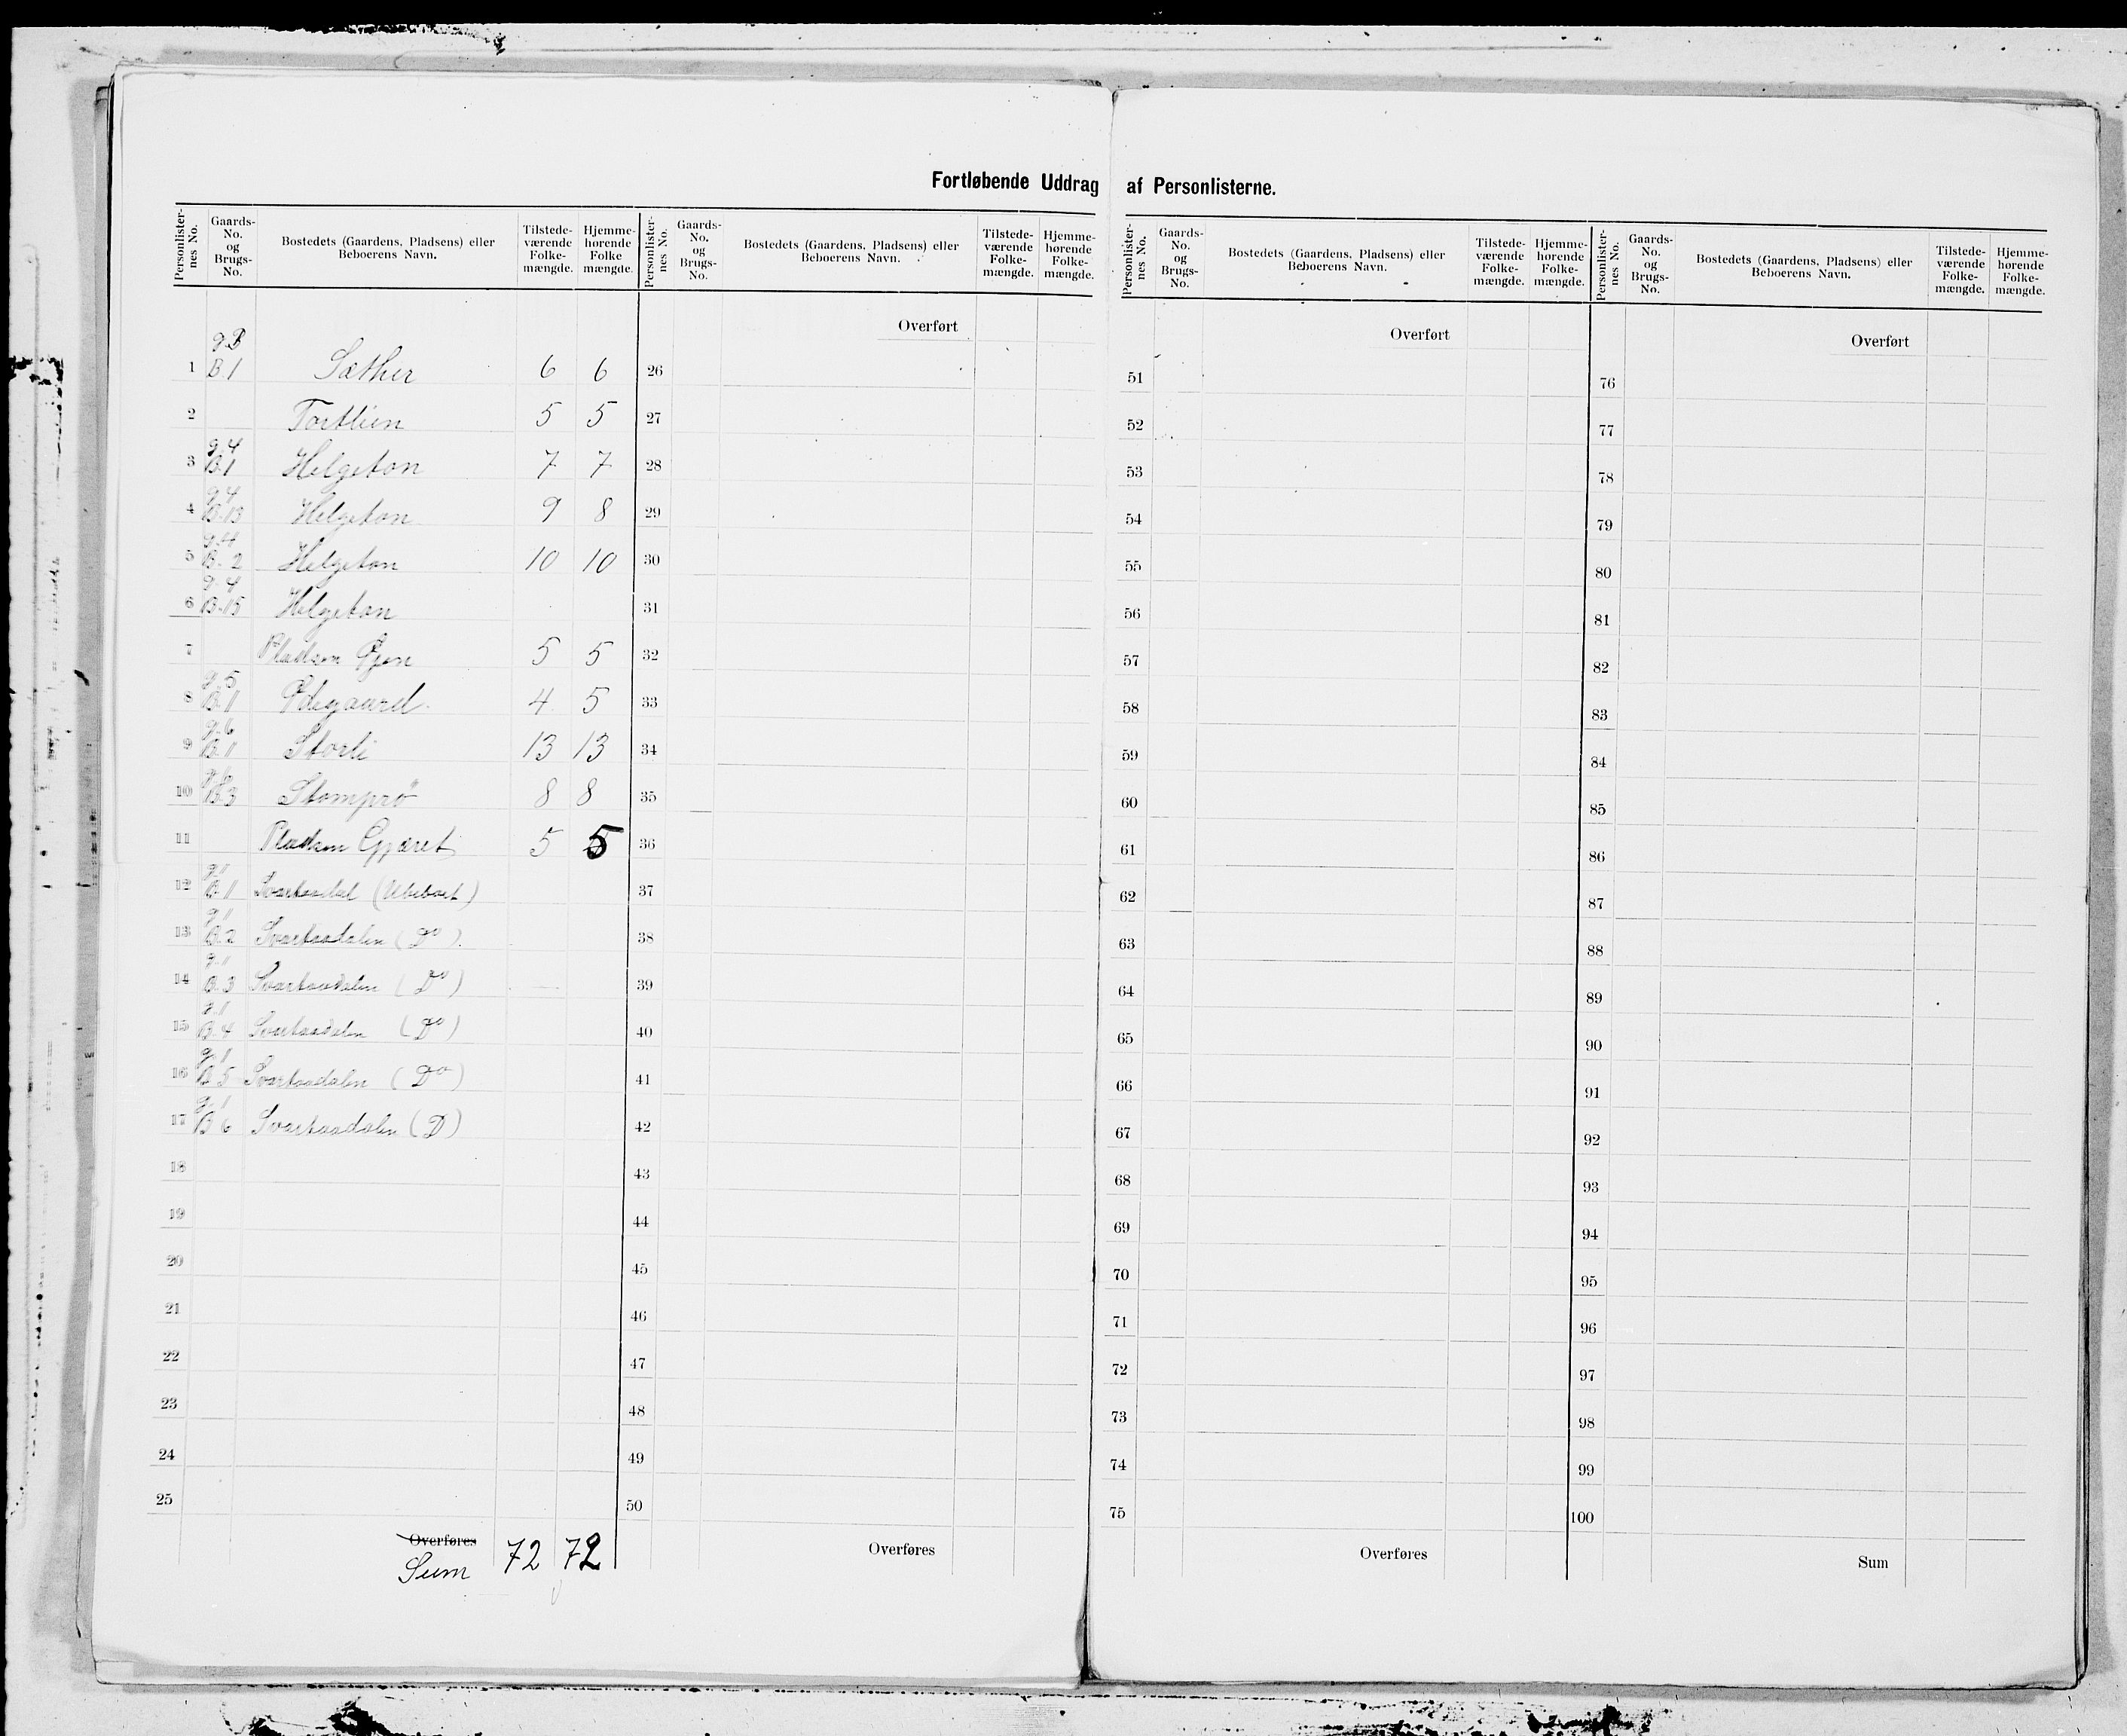 Fortløbende Uddrag af Personlisterne.
Personlisternes No. Gaards-No. og Brugs-No. Bostedets (Gaardens, Pladsens) eller Beboerens Navn. Tilstedeværende Folkemængde. Hjemmehørende Folke mængde.
Personlisternes No. Gaards-No. og Brugs-No. Bostedets (Gaardens, Pladsens) eller Beboerens Navn. Tilstedeværende Folkemængde. Hjemmehørende Folkemængde.
Personlisternes No. Gaards-No. og Brugs-No. Bostedets (Gaardens, Pladsens) eller Beboerens Navn. Tilstedeværende Folkemængde. Hjemmehørende Folkemængde.
Personlisternes No. Gaards-No. og Brugs-No. Bostedets (Gaardens, Pladsens) eller Beboerens Navn. Tilstedeværende Folkemængde. Hjemmehørende Folkemængde.
Overført Overført Overført
1 B.1 Sæther 6 6 26 51 76
2 Tortlien 5 5 27 52 77
3 g.4 B.1 Helgeton 7 7 28 53 78
4 g.4 B.13 Helgeton 9 8 29 54 79
5 g.4 B.2 Helgeton 10 10 30 55 80
6 g.4 B.15 Helgeton 31 56 81
7 Pladsen Øyen 5 5 32 57 82
8 g.5 B.1 Ødegaard. 4 5 33 58 83
9 g.6 B.1 Storli 13 13 34 59 84
10 g.6 B.3 Stomprø 8 8 35 60 85
11 Pladsen Gjæret 5 5 36 61 86
12 g.1 B.1 Svartaadal (Ubeboet) 37 62 87
13 g.1 B.2 Svartaadalen (Do). 38 63 88
14 g.1 B.3 Svartaadalen (Do) 39 64 89
15 g.1 B.4 Svartaadalen (Do) 40 65 90
16 g.1 B.5 Svartaadalen (Do) 41 66 91
17 g.1 B 6 Svartaadalen (D) 42 67 92
18 43 68 93
19 44 69 94
20 45 70 95
21 46 71 96
22 47 72 97
23 48 73 98
24 49 74 99
25 50 75 100
Overføres Overføres Overføres Sum
Sum 72 72